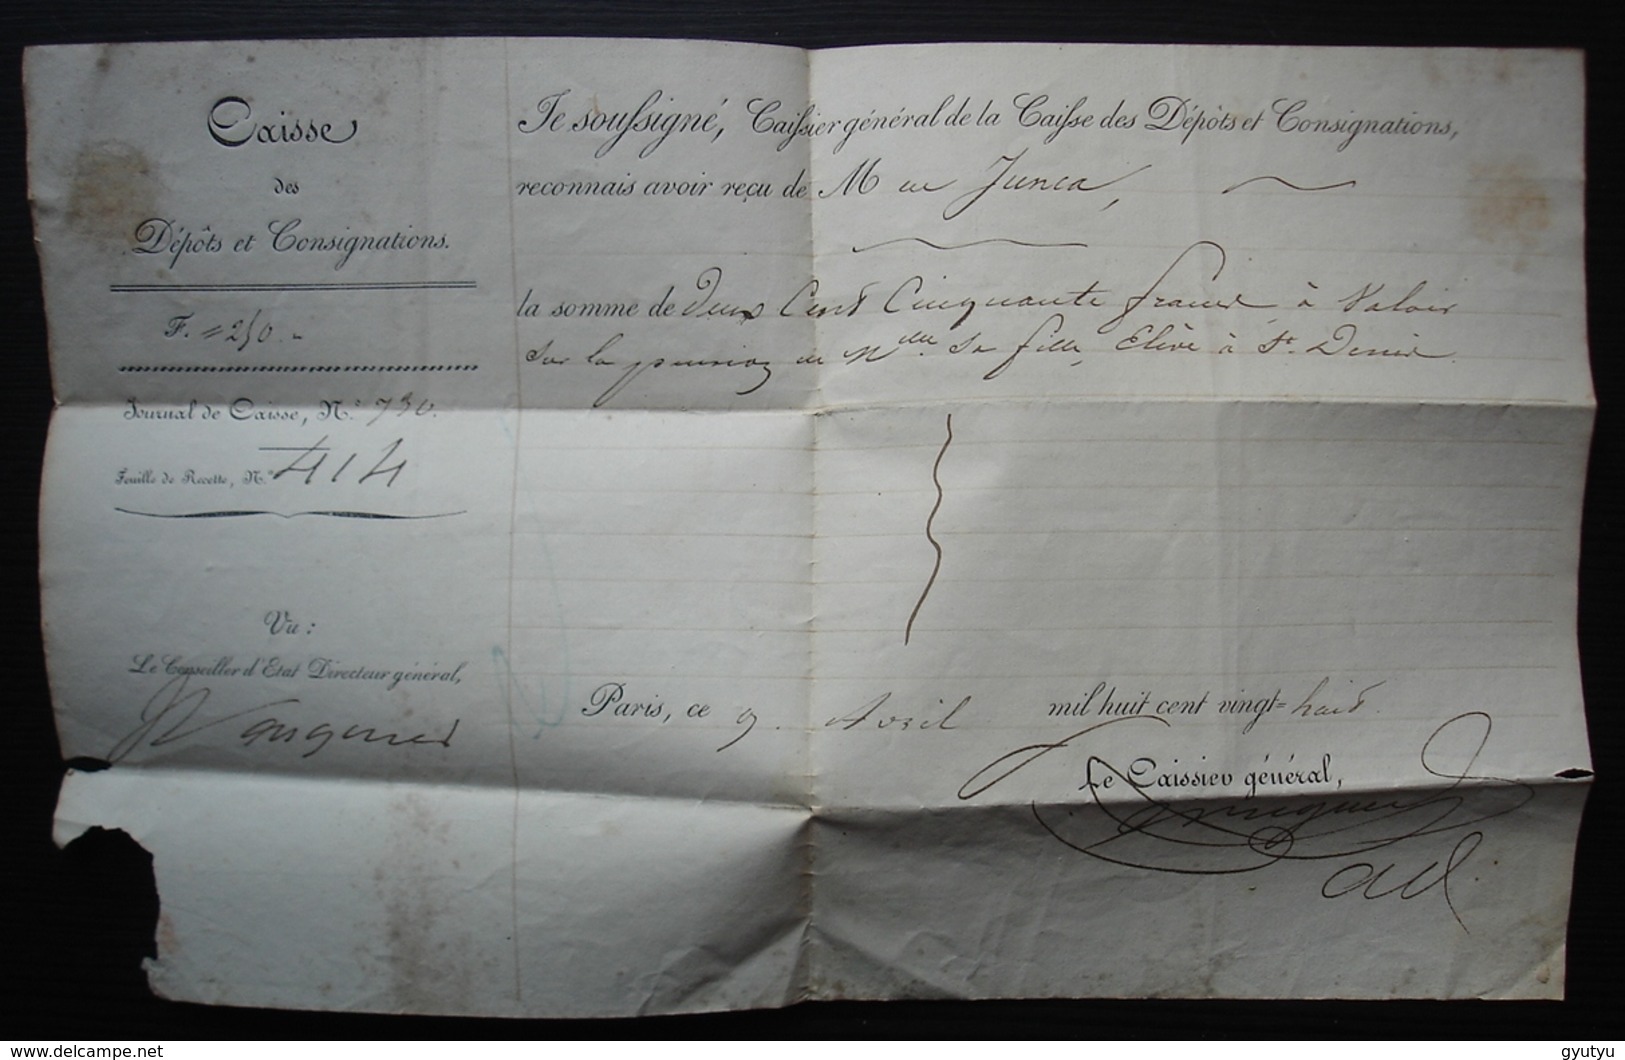 Caisse
des
Dépôts et Consignations.
F. = 250 "
Journal de Caisse, N.° 730.
Feuille de Recette, N.° 414
Vu:
Le Conseiller d'Etat Directeur général,
Je soussigné, Caissier général de la Caisse des Dépôts et Consignations,
reconnais avoir reçu de M de Junca,
la somme de deux Cent Cinquante francs à Valoir
sur la pension de Mlle. sa fille, Elève à St. Denis.
Paris, ce 9. Avril mil huit cent vingt=huit.
Le Caissier général,
delcampe.net
gyutyu